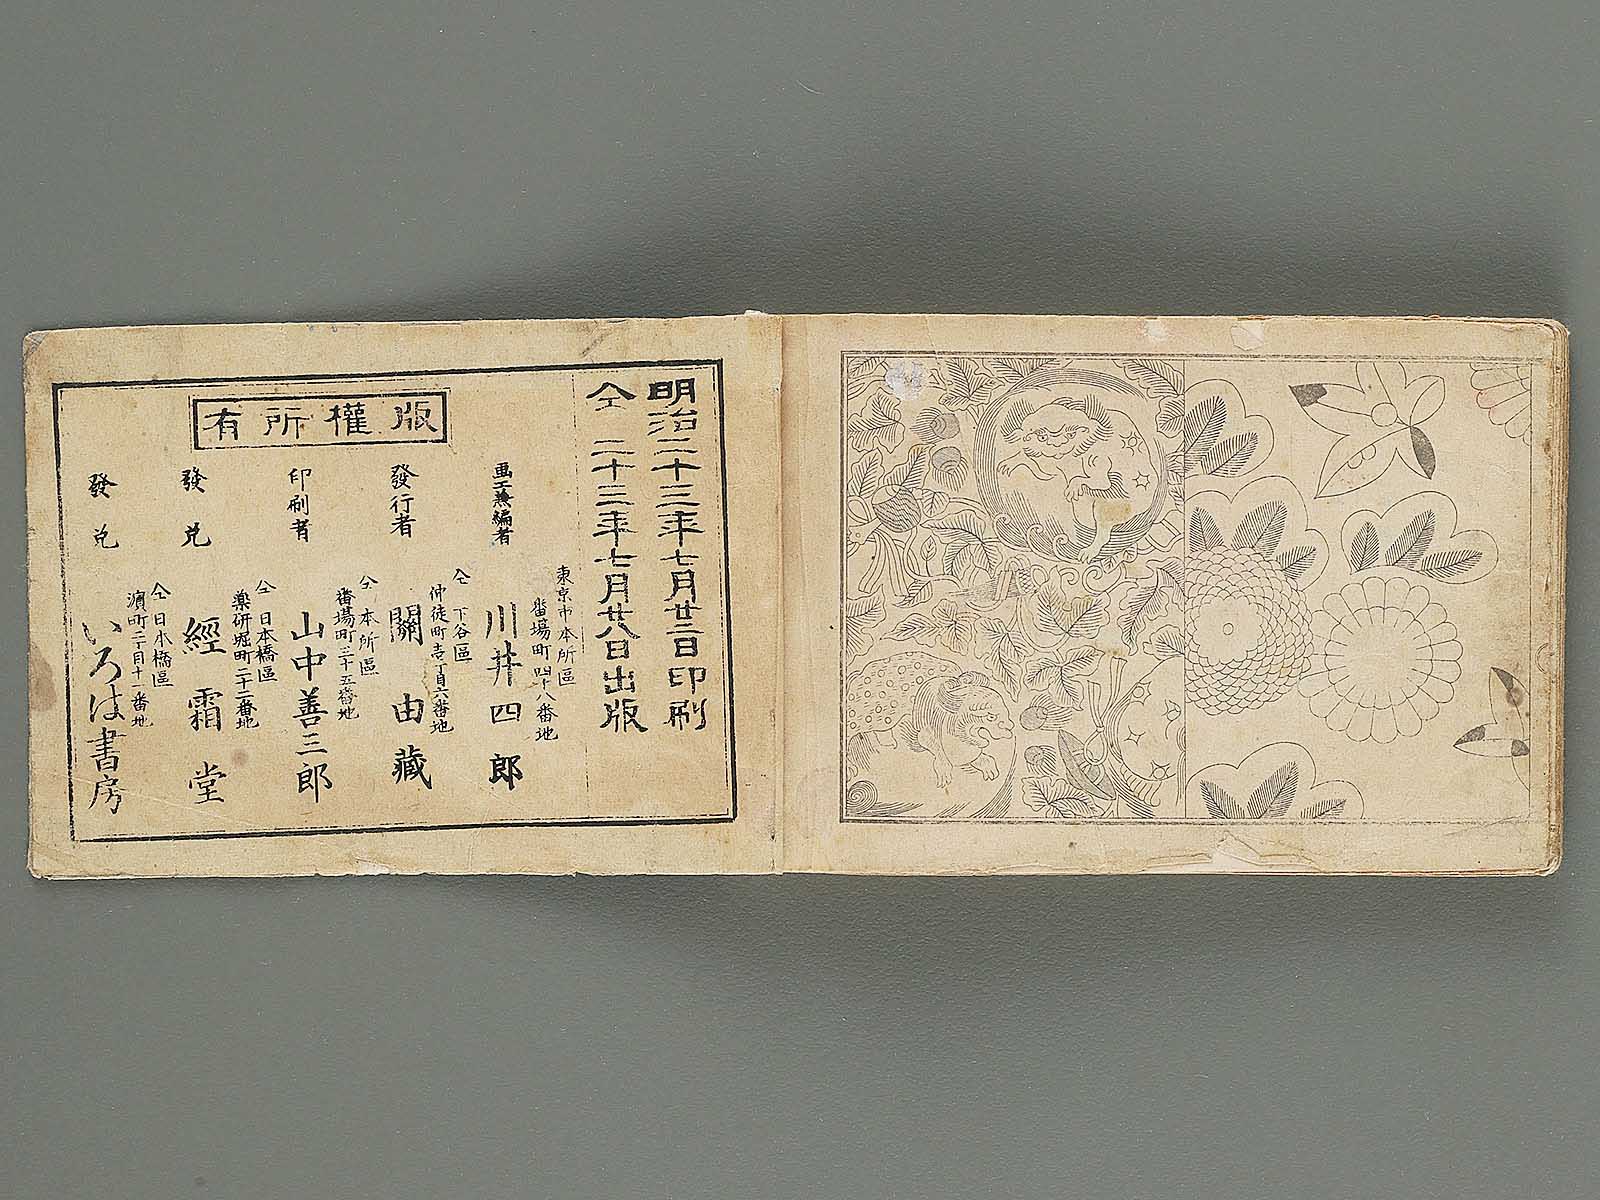 明治二十三年七月廿二日印刷
仝 二十三年七月廿八日出版
版權所有
画工兼編者
東京市本所區
番場町四十八番地
川井四郎
發行者
仝 下谷區
仲徒町壱丁目六番地
關由藏
印刷者
仝 本所區
番場町三十五番地
山中善三郎
發兌
仝 日本橋區
薬研堀町二十二番地
經霜堂
發兌
仝 日本橋區
濱町二丁目十一番地
いろは書房